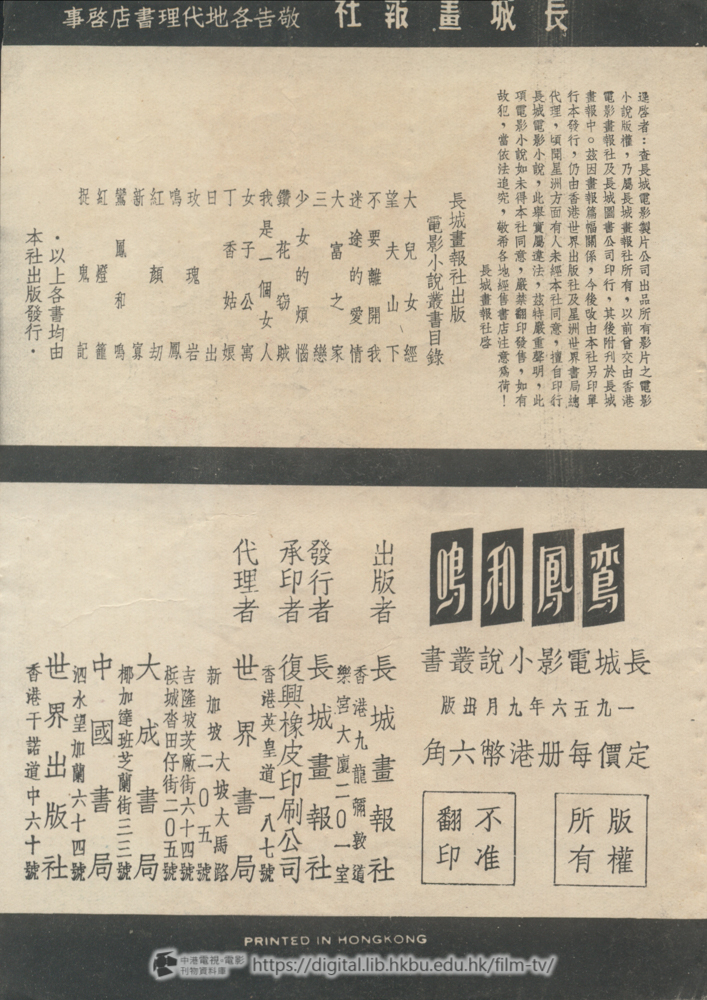 長城畫報社 敬告各地代理書店啓事
逕啓者：查長城電影製片公司出品所有影片之電影
小說版權，乃屬長城畫報社所有，以前曾交由香港
電影畫報社及長城圖書公司印行，其後附刊於長城
畫報中。茲因畫報篇幅關係，今後改由本社另印單
行本發行，仍由香港世界出版社及星洲世界書局總
代理，頃聞星洲方面有人未經本社同意，擅自印行
長城電影小說，此舉實屬違法，茲特嚴重聲明，此
項電影小說如未得本社同意，嚴禁翻印發售，如有
故犯，當依法追究，敬希各地經售書店注意爲荷！
長城畫報社啓
長城畫報社出版
電影小說叢書目錄
大兒女經
望夫山下
不要離開我
迷途的愛情
大富之家
三戀
少女的煩惱
鑽花窃賊
我是一個女人
女子公寓
丁香姑娘
日出
玫瑰岩
鳴鳳
紅顏劫
新寡
鸞鳳和鳴
紅燈籠
捉鬼記
·以上各書均由
本社出版發行·
鸞鳳和鳴
長城電影小說叢書
一九五六年九月出版
定價每册港幣六角
版權所有
不准翻印
出版者 長城畫報社
香港九龍彌敦道
樂宮大廈二〇一室
發行者 長城畫報社
承印者 復興橡皮印刷公司
香港英皇道一八七號
代理者 世界書局
新加坡大坡大馬路二〇五號
吉隆坡茨廠街六十四號
梹城沓田仔街二〇五號
大成書局
椰加達班芝蘭街三三號
中國書局
泗水望加蘭六十四號
世界出版社
香港干諾道中六十號
PRINTED IN HONGKONG
中港電視·電影
刊物資料庫
https://digital.lib.hkbu.edu.hk/film-tv/